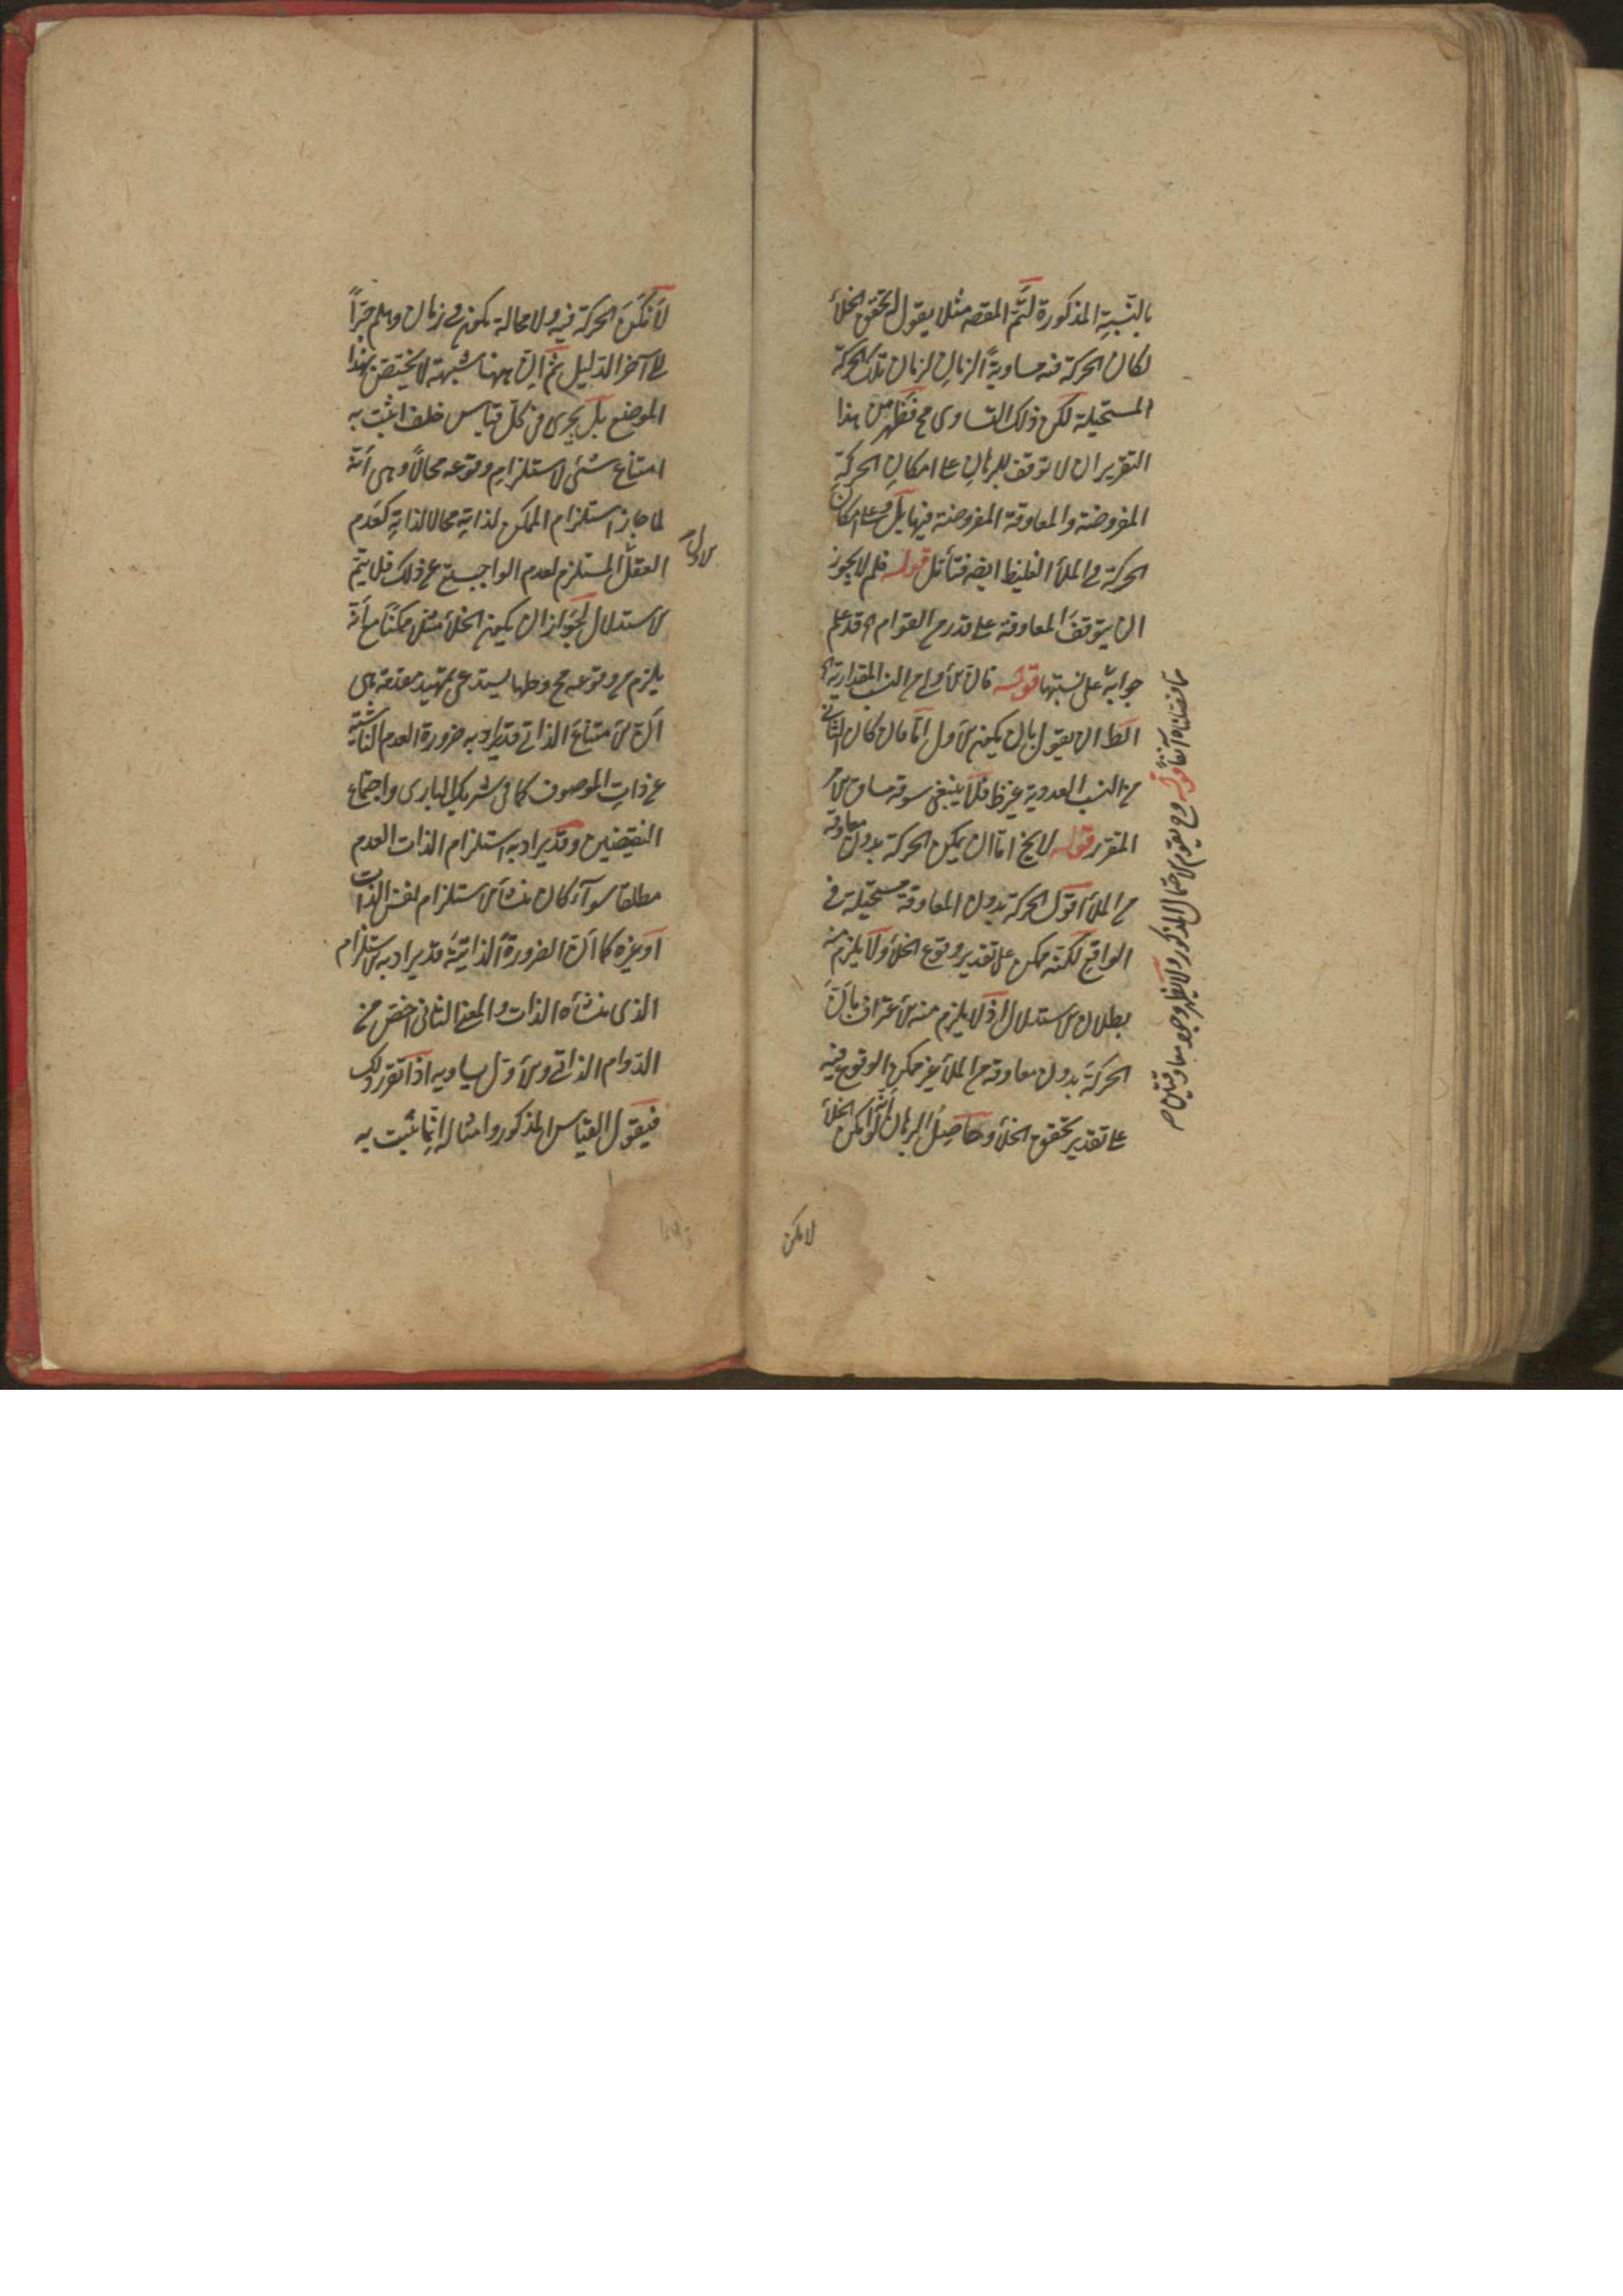 بالنسبة المذكورة لتم المقصد مثلا يقول لو تحقق الخلأ
لكان الحركة فيه مساوية الزمان لزمان تلك الحركة
المستحيلة لكن ذلك التساوي مح فظهر من هذا
التقرير ان لا توقف للبرهان على امكان الحركة
المفروضة والمعاوقة المفروضة فيها بل وعلى امكان
الحركة في الملأ الغليظ ايضا فتأمل قوله فلم لا يجوز
ان يتوقف المعاوقة على قدر من القوام اه قد علم
جوابه على نسبتها قوله فان الأولى من النسب المقدارية اه
الظ ان يقول بان يكون الأول اما فان كان الثاني
من النسب العددية غيرظ فلا ينبغي سوقه مساق الأمر
المقرر قوله لا يخ اما ان يمكن الحركة بدون معاوقة
من الملأ اقول الحركة بدون المعاوقة مستحيلة في
الواقع لكنه ممكن على تقدير وقوع الخلأ ولا يلزم منه
بطلان الاستدلال اذ لا يلزم منه الاعتراف بان
الحركة بدون معاوقة من الملأ غير ممكن الوقوع فيه
على تقدير تحقق الخلأ وحاصل البرهان انه لو امكن الخلأ
مما فصلناه آنفا قوله وح يقوم الاحتمال المذكور ولا يظهر وجود معاوقتين اه
لامكن
لأمكن الحركة فيه ولا محالة يكون في زمان وهلم جرا
الى آخر الدليل ثم ان ههنا شبهة لا يختص بهذا
الموضع بل يجري في كل قياس خلف اثبت به
امتناع شئ لاستلزام وقوعه محالا وهي أنه
لما جاز استلزام الممكن لذاته محالا لذاته كعدم
العقل المستلزم لعدم الواجب تع عن ذلك فلا يتم
الاول
الاستدلال لجواز ان يكون الخلأ مثلا ممكنا مع أنه
يلزم من وقوعه مح وحلها يستدعى تمهيد مقدمة هي
ان الامتناع الذاتي قد يراد به ضرورة العدم الناشية
عن ذات الموصوف كما في شريك الباري واجتماع
النقيضين وقد يراد به استلزام الذات العدم
مطلقا سوآء كان منشأ الاستلزام نفس الذات
أو غيره كما ان الضرورة الذاتية قد يراد به الاستلزام
الذي منشأه الذات والمعنى الثاني اخص من
الدوام الذاتي والأول يساويه اذا تقرر ذلك
فيقول القياس المذكور وامثاله انما ثبت به